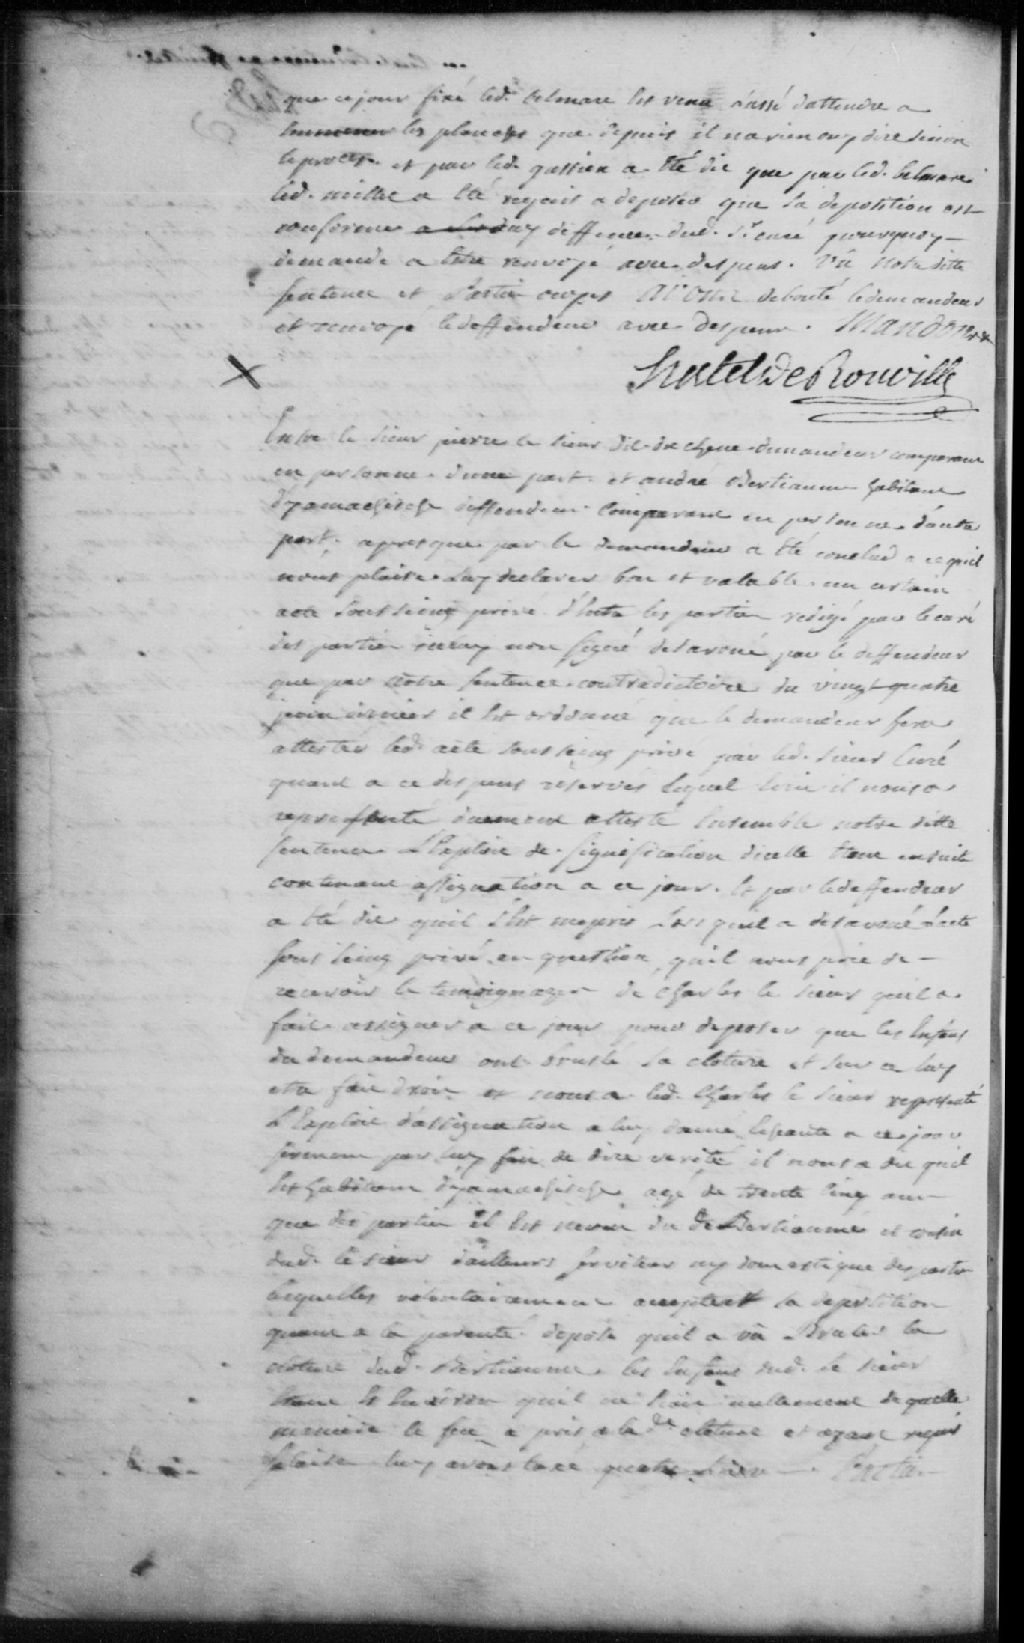 que ce jour fixé led. belmare est venu d'attendre a
les planches que depuis il na rien ouy dire sinon
le procès. et par led. gassien a été dit que par led. belmare
led. millet a été reçu a deposer que sa deposition est
conforme aux deffences dud. Sr. curé pourquoy
demande a être renvoyé avec despens. Vu notre ditte
sentence et partie ouyes Avons debouté le demandeur
et renvoyé le deffendeur avec despens. Mandons &c
hertel De Rouville
Entre le sieur pierre le sieur dit du chene demandeur comparant
en personne d'une part. et andré Bertiaume habitant
d'yamachiche deffendeur comparant en personne d'autre
part, apres que par le demandeur a été conclud a ce qu'il
nous plaise luy declarer bon et valable un certain
acte sous seing privé d'entre les parties redigé par le curé
des parties non signé desavoué par le deffendeur
que par notre sentence contradictoire du vingt quatre
juin dernier il est ordonné que le demandeur fera
attester led. acte sous seing privé par led. sieur Curé
quant a ce despens reservés lequel il nous a
representé duement attesté Ensemble notre ditte
sentence L'Exploit de signification d'icelle Etant ensuite
contenant assignation a ce jour. Et par le deffendeur
a été dit qu'il s'est mepris lors qu'il a desavoué l'acte
sous seing privé en question, qu'il nous prie de
recevoir le temoignage de Charles le sieur qu'il a
fait assigner a ce jour pour deposer que les Enfans
du demandeur ont bruslé sa cloture et sur ce luy
faire droit et nous a led. Charles le sieur representé
L'Exploit d'assignation a luy donné a ce jour
serment par luy fait de dire verité il nous a dit qu'il
Est habitant d'yamachiche agé de trente cinq ans
que des parties il est neveu du d. Bertiaume et cousin
dud. le sieur d'ailleurs serviteur ny domestique des parties
lesquelles volontairement acceptent sa deposition
quant a la parenté depose qu'il a vû Bruler la
cloture dud. Bertiaume les Enfans dud. le sieur
qu'il ne sait nullement de quelle
maniere le feu a pris a la de. cloture et ayant requis
salaire luy avons taxé quatre Partie